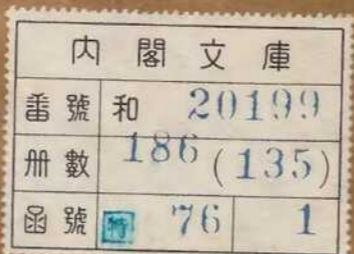 内閣文庫
番號 和 20199
册數 186(135)
函號 特 76 1